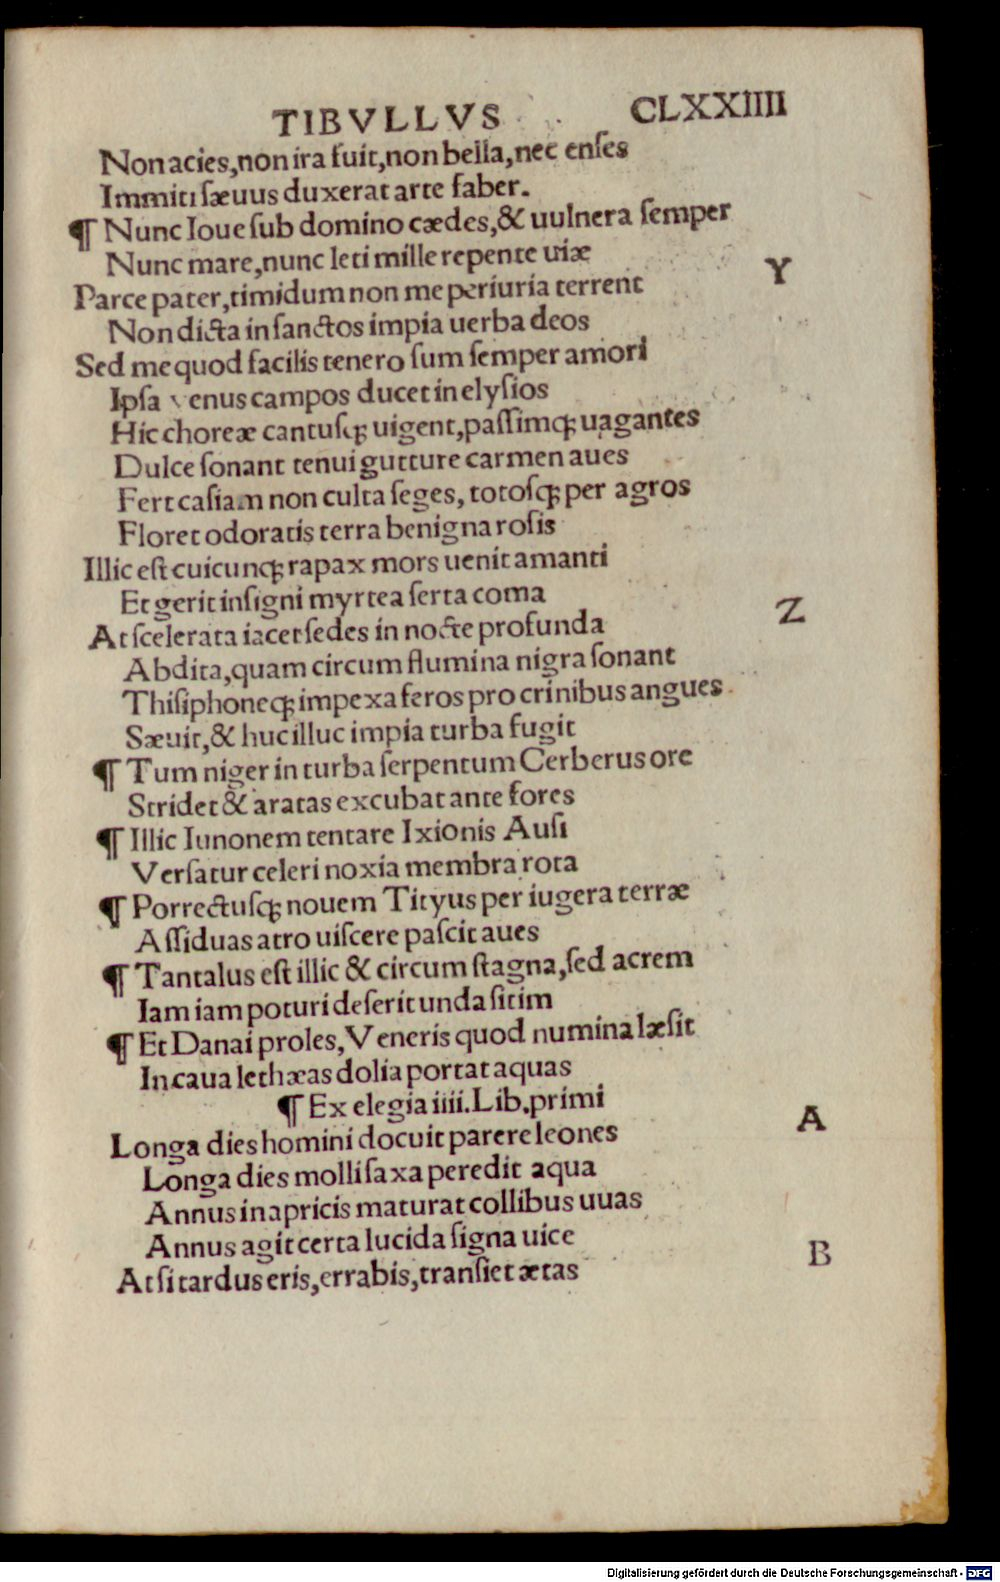 TIBVLLVS CLXXIIII
Non acies,non ira fuit,non bella,nec enſes
Immiti ſæuus duxerat arte faber.
¶ Nunc Ioue ſub domino cædes,& uulnera ſemper
Nunc mare,nunc leti mille repente uiæ
Y
Parce pater,timidum non me periuria terrent
Non dicta in ſanctos impia uerba deos
Sed me quod facilis tenero ſum ſemper amori
Ipſa venus campos ducet in elyſios
Hic choreæ cantuſqꝫ uigent,paſſimqꝫ uagantes
Dulce ſonant tenui gutture carmen aues
Fert caſiam non culta ſeges, totoſqꝫ per agros
Floret odoratis terra benigna roſis
Illic eſt cuicunqꝫ rapax mors uenit amanti
Et gerit inſigni myrtea ſerta coma
Z
At ſcelerata iacet ſedes in nocte profunda
Abdita,quam circum flumina nigra ſonant
Thiſiphoneqꝫ impexa feros pro crinibus angues
Sæuit,& huc illuc impia turba fugit
¶ Tum niger in turba ſerpentum Cerberus ore
Stridet & æratas excubat ante fores
¶ Illic Iunonem tentare Ixionis Auſi
Verſatur celeri noxia membra rota
¶ Porrectuſqꝫ nouem Tityus per iugera terræ
Aſſiduas atro uiſcere paſcit aues
¶ Tantalus eſt illic & circum ſtagna,ſed acrem
Iam iam poturi deſerit unda ſitim
¶ Et Danai proles,Veneris quod numina læſit
In caua lethæas dolia portat aquas
¶ Ex elegia iiii.Lib.primi
A
Longa dies homini docuit parere leones
Longa dies molli ſaxa peredit aqua
Annus in apricis maturat collibus uuas
Annus agit certa lucida ſigna uice
B
At ſi tardus eris,errabis,tranſiet ætas
Digitalisierung gefördert durch die Deutsche Forschungsgemeinschaft - DFG